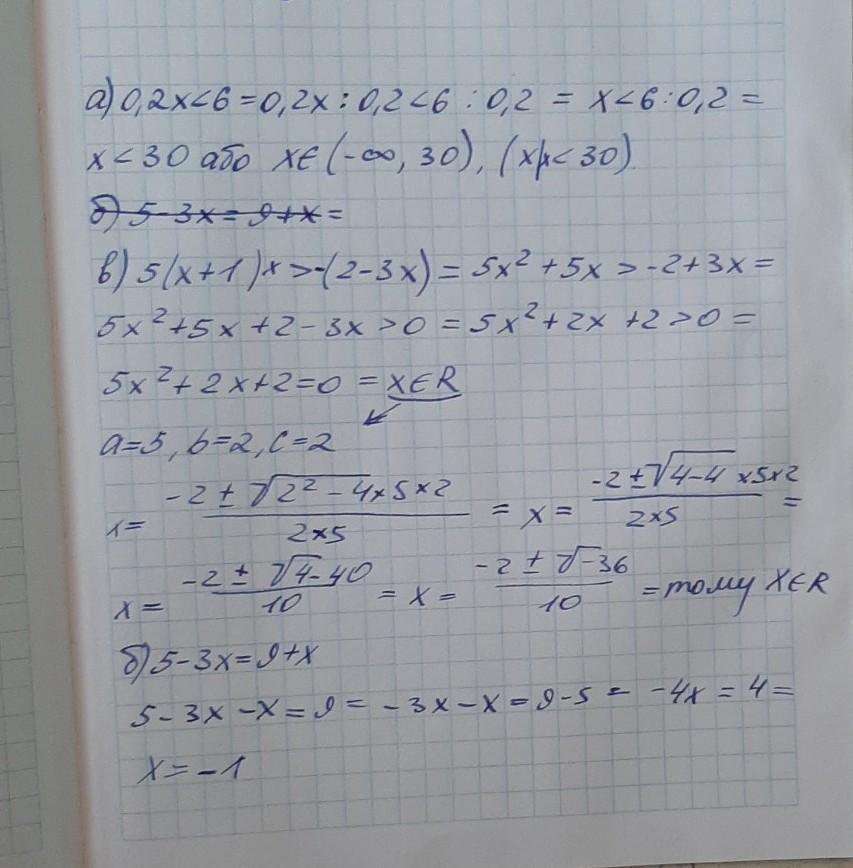 а) 0,2x<6 = 0,2x : 0,2 < 6 : 0,2 = x < 6 : 0,2 =
x < 30 або x∈(-∞, 30), (x|x < 30)
б) 5-3x = 9+x =
в) 5(x+1)x > -(2-3x) = 5x² + 5x > -2+3x =
5x²+5x+2-3x>0 = 5x²+2x+2>0 =
5x²+2x+2=0 = x∈R
a=5, b=2, c=2
x = (-2 ± √(2²-4)×5×2)/(2×5) = x = (-2 ± √(4-4)×5×2)/(2×5) =
x = (-2 ± √4-40)/10 = x = (-2 ± √-36)/10 = тому x∈R
б) 5-3x=9+x
5-3x-x=9 = -3x-x=9-5 = -4x=4=
x=-1